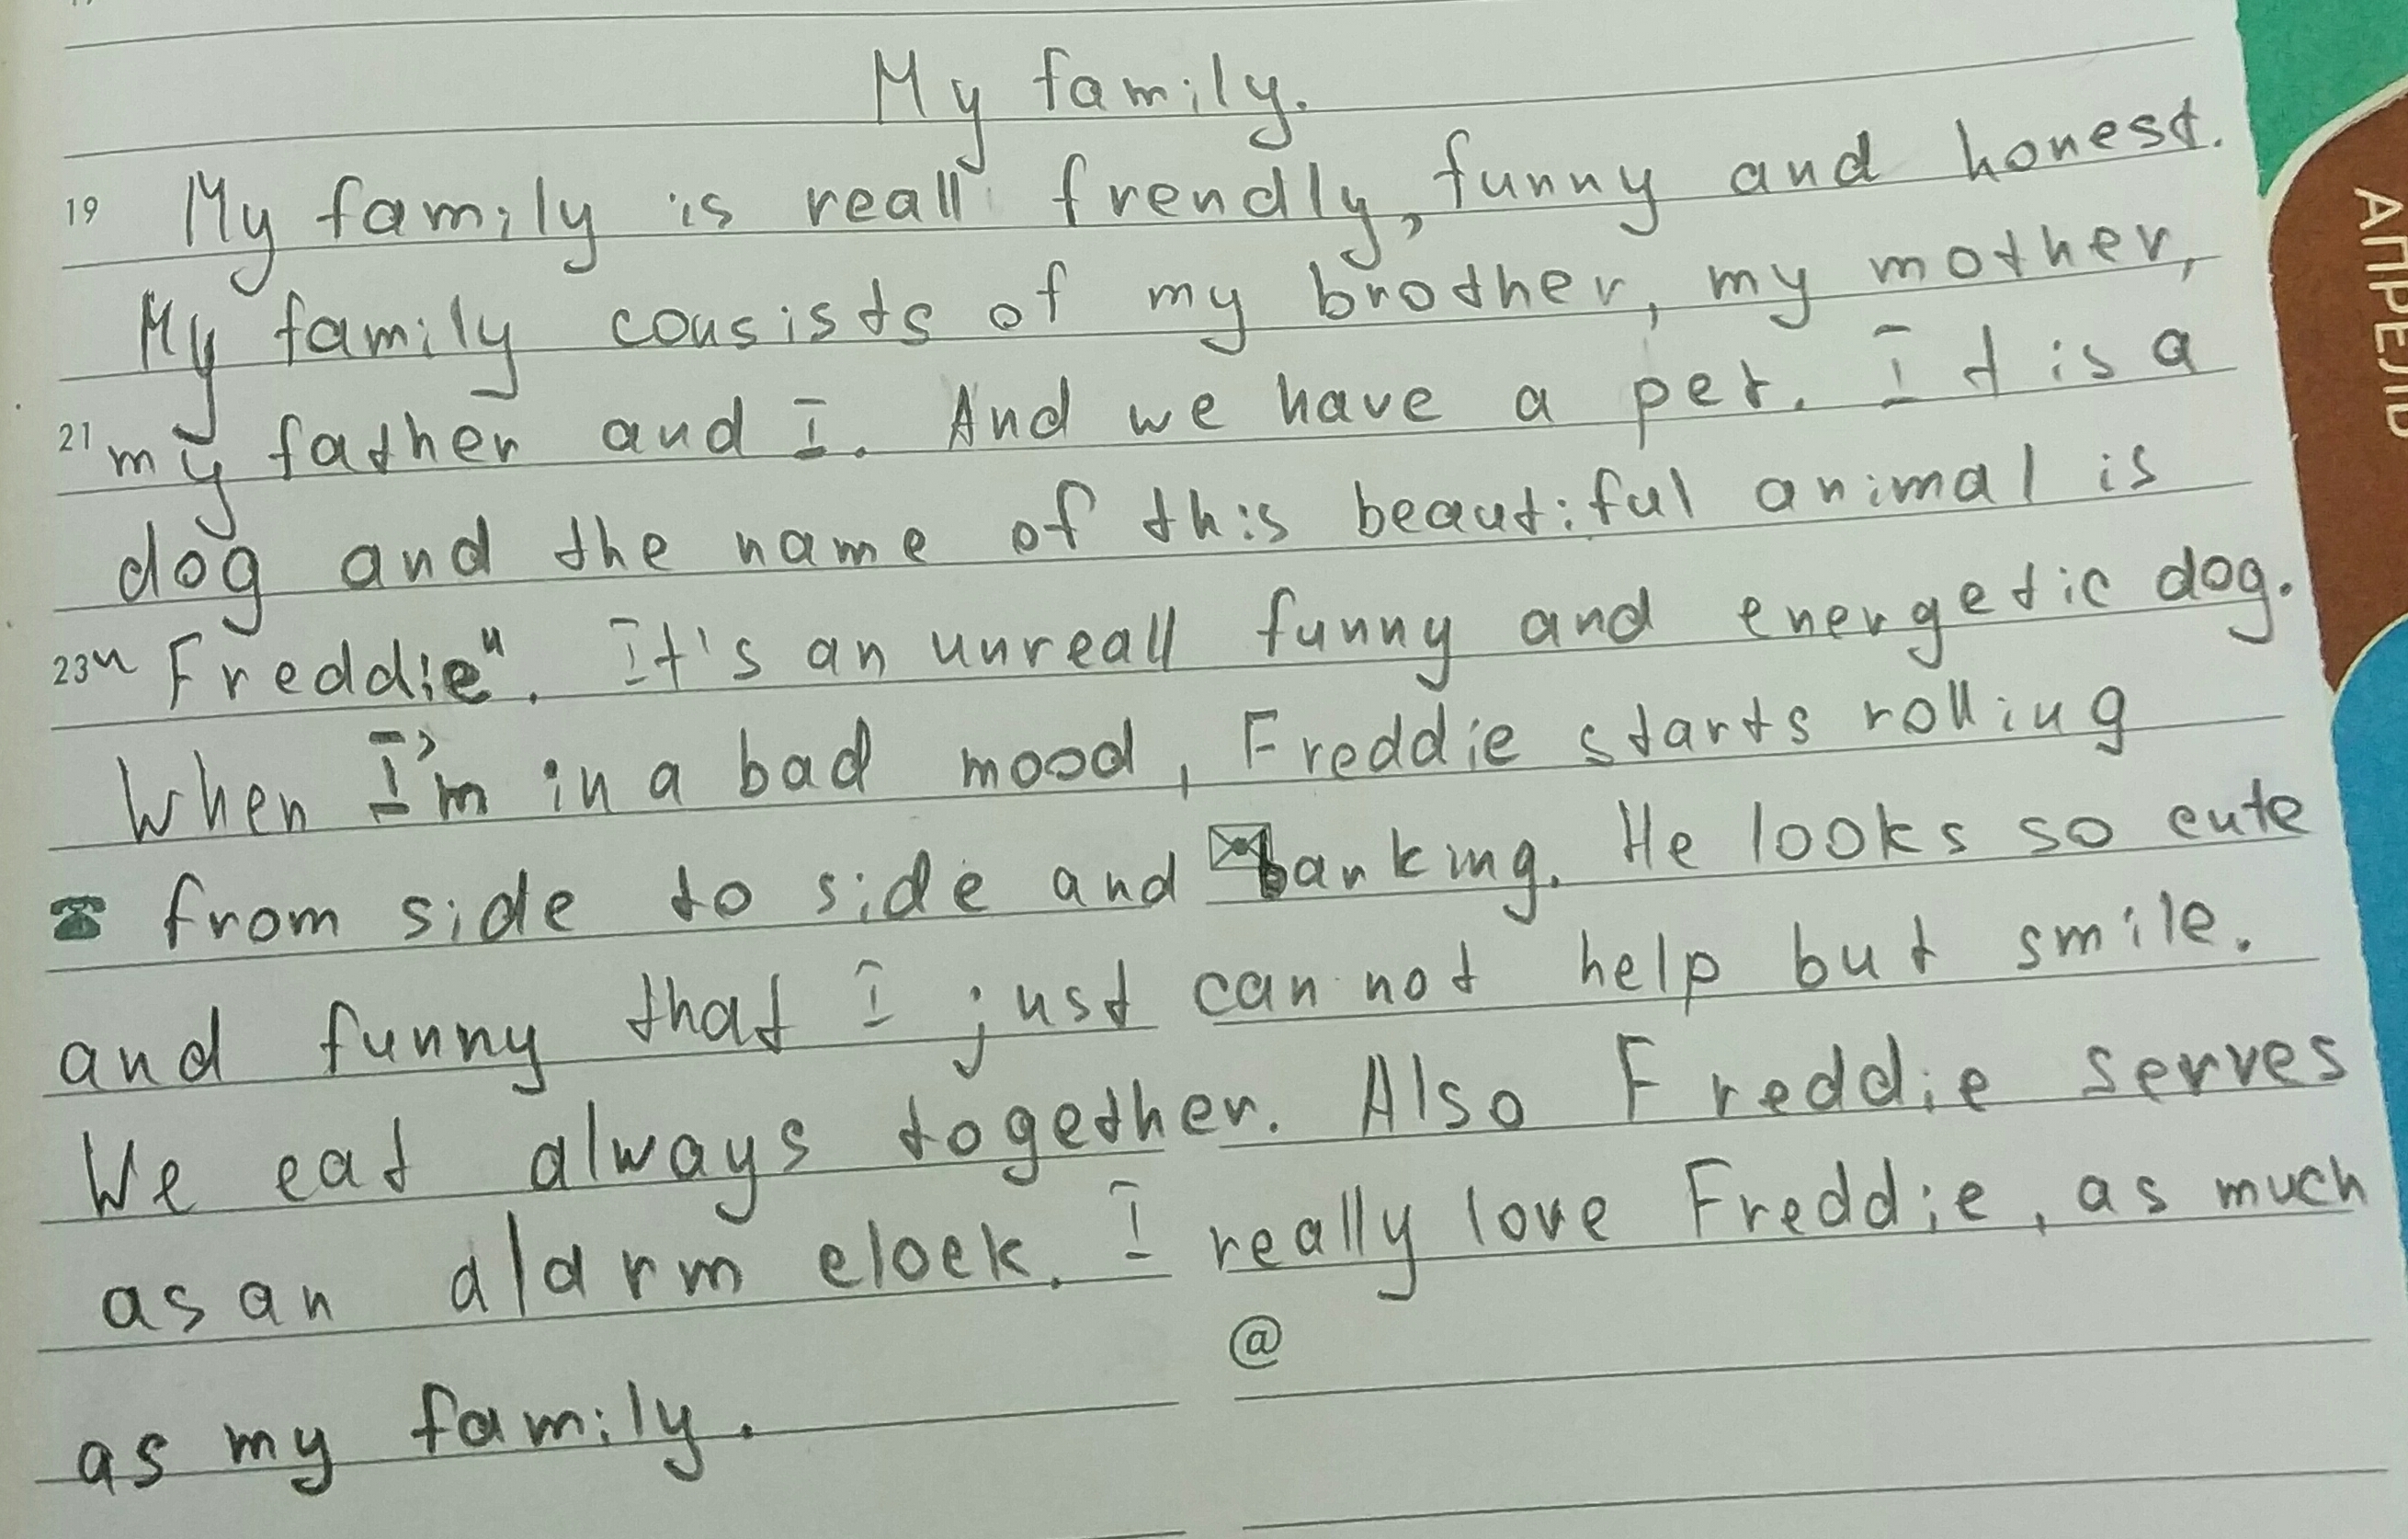 My family.
19 My family is reall frendly, funny and honest.
My family consists of my brother, my mother,
21 my father and I. And we have a pet. It is a
dog and the name of this beautiful animal is
23 „Freddie". It's an unreall funny and energetic dog.
When I'm in a bad mood, Freddie starts rolling
from side to side and barking. He looks so cute
and funny that I just can not help but smile.
We eat always together. Also Freddie serves
as an alarm clock. I really love Freddie, as much
@
as my family.
АПРЕЛЬ